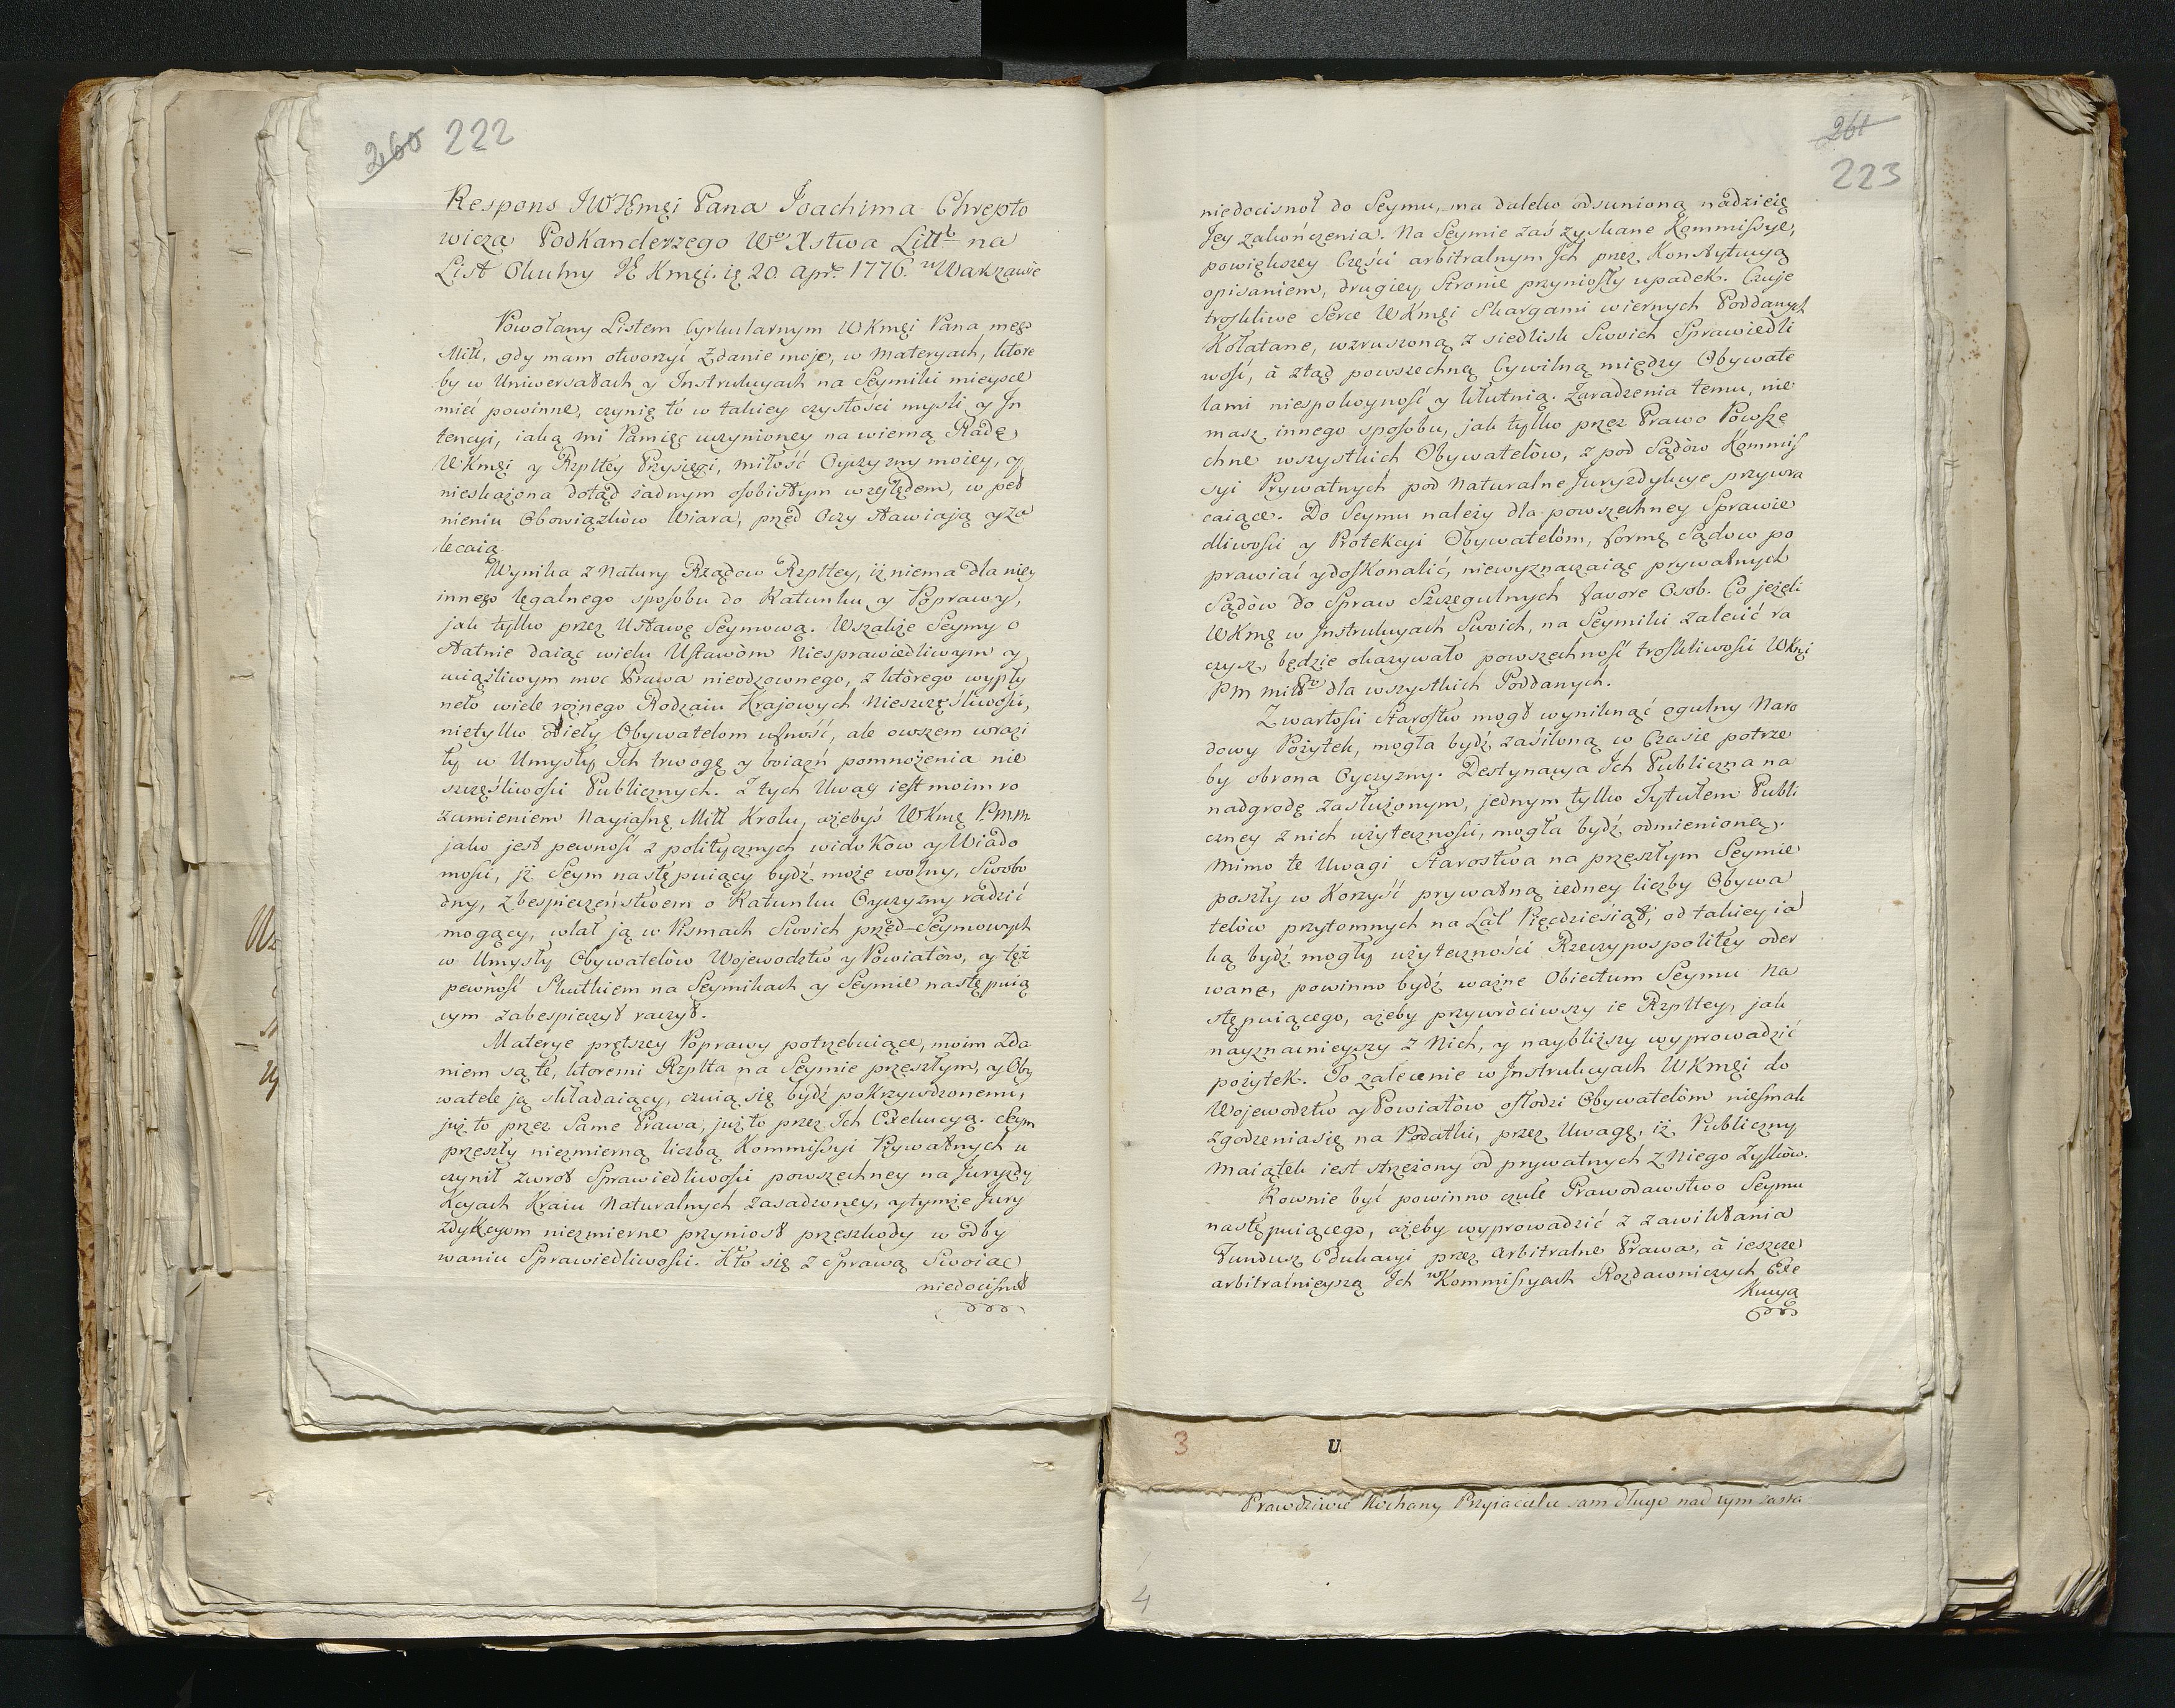 260 222
Respons JWJEmęi Pana Joachima Chrepto
wicza Podkanclerzego Wo Xstwa Littο na
List Okulny JE Kmęi. ię 20. Apr. 1776. w Warszawie
Powołany Listem Cyrkularnym WKmęi Pana meg
Mił, gdy mam otworzyć Zdanie moje, w Materyach, ktore
by w Uniwersałach y Instrukcyach na Seymiki mieysce
mieć powinne, czynię to w takiey czystości mysli y In
tencyi, iaką mi Pamięć uczynioney na wierną Radę
WKmęi y Rzpltey Przysięgi, miłość Oyczyzny moiey, y
nieskażona dotąd żadnym osobistym względem, w peł
nieniu Obowiązków Wiara, przed Oczy stawiają y za
lecaią.
Wynika z Natury Rządow Rzpltey, iż niema dla niey
innego legalnego sposobu do Ratunku y Poprawy,
jak tylko przez Ustawę Seymową. Wszakże Seymy o
statnie daiąc wielu Ustawom Niesprawiedliwym y
uciążliwym moc Prawa nieodzownego, z którego wypły
neło wiele rożnego Rodzaiu Krajowych Nieszczęśliwości,
nietylko odieły Obywatelom ufność, ale owszem wrazi
ły w Umysły Ich trwogę y boiaźń pomnożenia nie
szczęśliwości Publicznych. Z tych Uwag iest moim ro
zumieniem Nayiaśnę Mił Krolu, ażebyś WKmę P.m.m.
jako jest pewność z politycznych widoków y Wiado
mości, iż Seym następuiący bydź może wolny, Swobo
dny, z bespieczeństwem o Ratunku Oyczyzny radzić
mogący, wlał ją w Pismach Swoich przed-Seymowych
w Umysły Obywatelów Wojewodztw y Powiatów, y też
pewność Skutkiem na Seymikach y Seymie następuią
cym zabespieczył raczył.
Materye prętszey Poprawy potrzebuiące, moim Zda
niem są te, ktoremi Rzplta na Seymie przeszłym, y Oby
watele ją składaiący, czuią się bydź pokrzywdzonemi,
już to przez Same Prawa, już to przez Ich Exekucyą. Seym
przeszły niezmierną liczbą Kommissyi Prywatnych u
czynił zwrot Sprawiedliwości powszechney na Juryzdy
kcyach Kraiu Naturalnych zasadzoney, y tymże Jury
zdykcyom niezmierne przyniosł przeszkody w odby
waniu Sprawiedliwości. Kto się z Sprawą Swoiąc
niedocisnoł
261
223
niedocisnoł do Seymu, ma daleko odsunioną nadzieię
Jey zakończenia. Na Seymie zaś zyskane Kommissye,
powiększey Części arbitralnym Ich przez Konstytucyą
opisaniem, drugiey Stronie przyniosły upadek. Czuje
troskliwe Serce WKmęi Skargami wiernych Poddanych
Kołatane, wzruszoną z siedlisk Swoich Sprawiedli
wość, à ztąd powszechną Cywilną między Obywate
lami niespokoyność y kłutnią. Zaradzenia temu, nie
masz innego sposobu, jak tylko przez Prawo Powsze
chne wszystkich Obywatelów, z pod Sądòw Kommis
syi Prywatnych pod Naturalne Juryzdykcye przywra
caiące. Do Seymu należy dla powszechney Sprawie
dliwości y Protekcyi Obywatelòm, formę Sądow po
prawiać y doskonalić, niewyznaczaiąc prywatnych
Sądòw do Spraw Szczegulnych favore Osob. Co jeżeli
WKmę w Instrukcyach Swoich, na Seymiki zalecić ra
czysz, będzie okazywało powszechność troskliwości WKmęi
Pm miło dla wszystkich Poddanych.
Z wartości Starostw mogł wyniknąć ogulny Naro
dowy Pożytek, mogła bydź zasiloną w Czasie potrze
by obrona Oyczyzny. Destynacya Ich Publiczna na
nadgrodę zasłużonym, jednym tylko Tytułem Publi
czney z nich użyteczności, mogła bydź odmienioną.
Mimo te Uwagi Starostwa na przeszłym Seymie
poszły w Korzyść prywatną iedney liczby Obywa
telòw przytomnych na Lat Pięcdziesiąt, od takiey ia
ką bydź mogły użyteczności Rzeczypospolitey oder
wane, powinno bydź ważne Obiectum Seymu na
stępuiącego, ażeby przywròciwszy ie Rzpltey, jak
nayznacnieyszy z Nich, y naybliższy wyprowadzić
pożytek. To zalecenie w Instrukcyach WKmęi do
Wojewodztw y Powiatòw osłodzi Obywatelòm niesmak
zgodzenia się na Podatki, przez Uwagę, iż Publiczny
Maiątek iest strzeżony od prywatnych z Niego Zyskòw.
Rownie być powinno czułe Prawodawstwo Seymu
następuiącego, ażeby wyprowadzić z zawikłania
Fundusz Edukacyi przez arbitralne Prawa, à ieszcze
arbitralnieyszą Ich w Kommissyach Rozdawniczych Exe
kucyą
3 U.
Prawdziwie Kochany Przyiacielu sam długo nad tym zasta
4